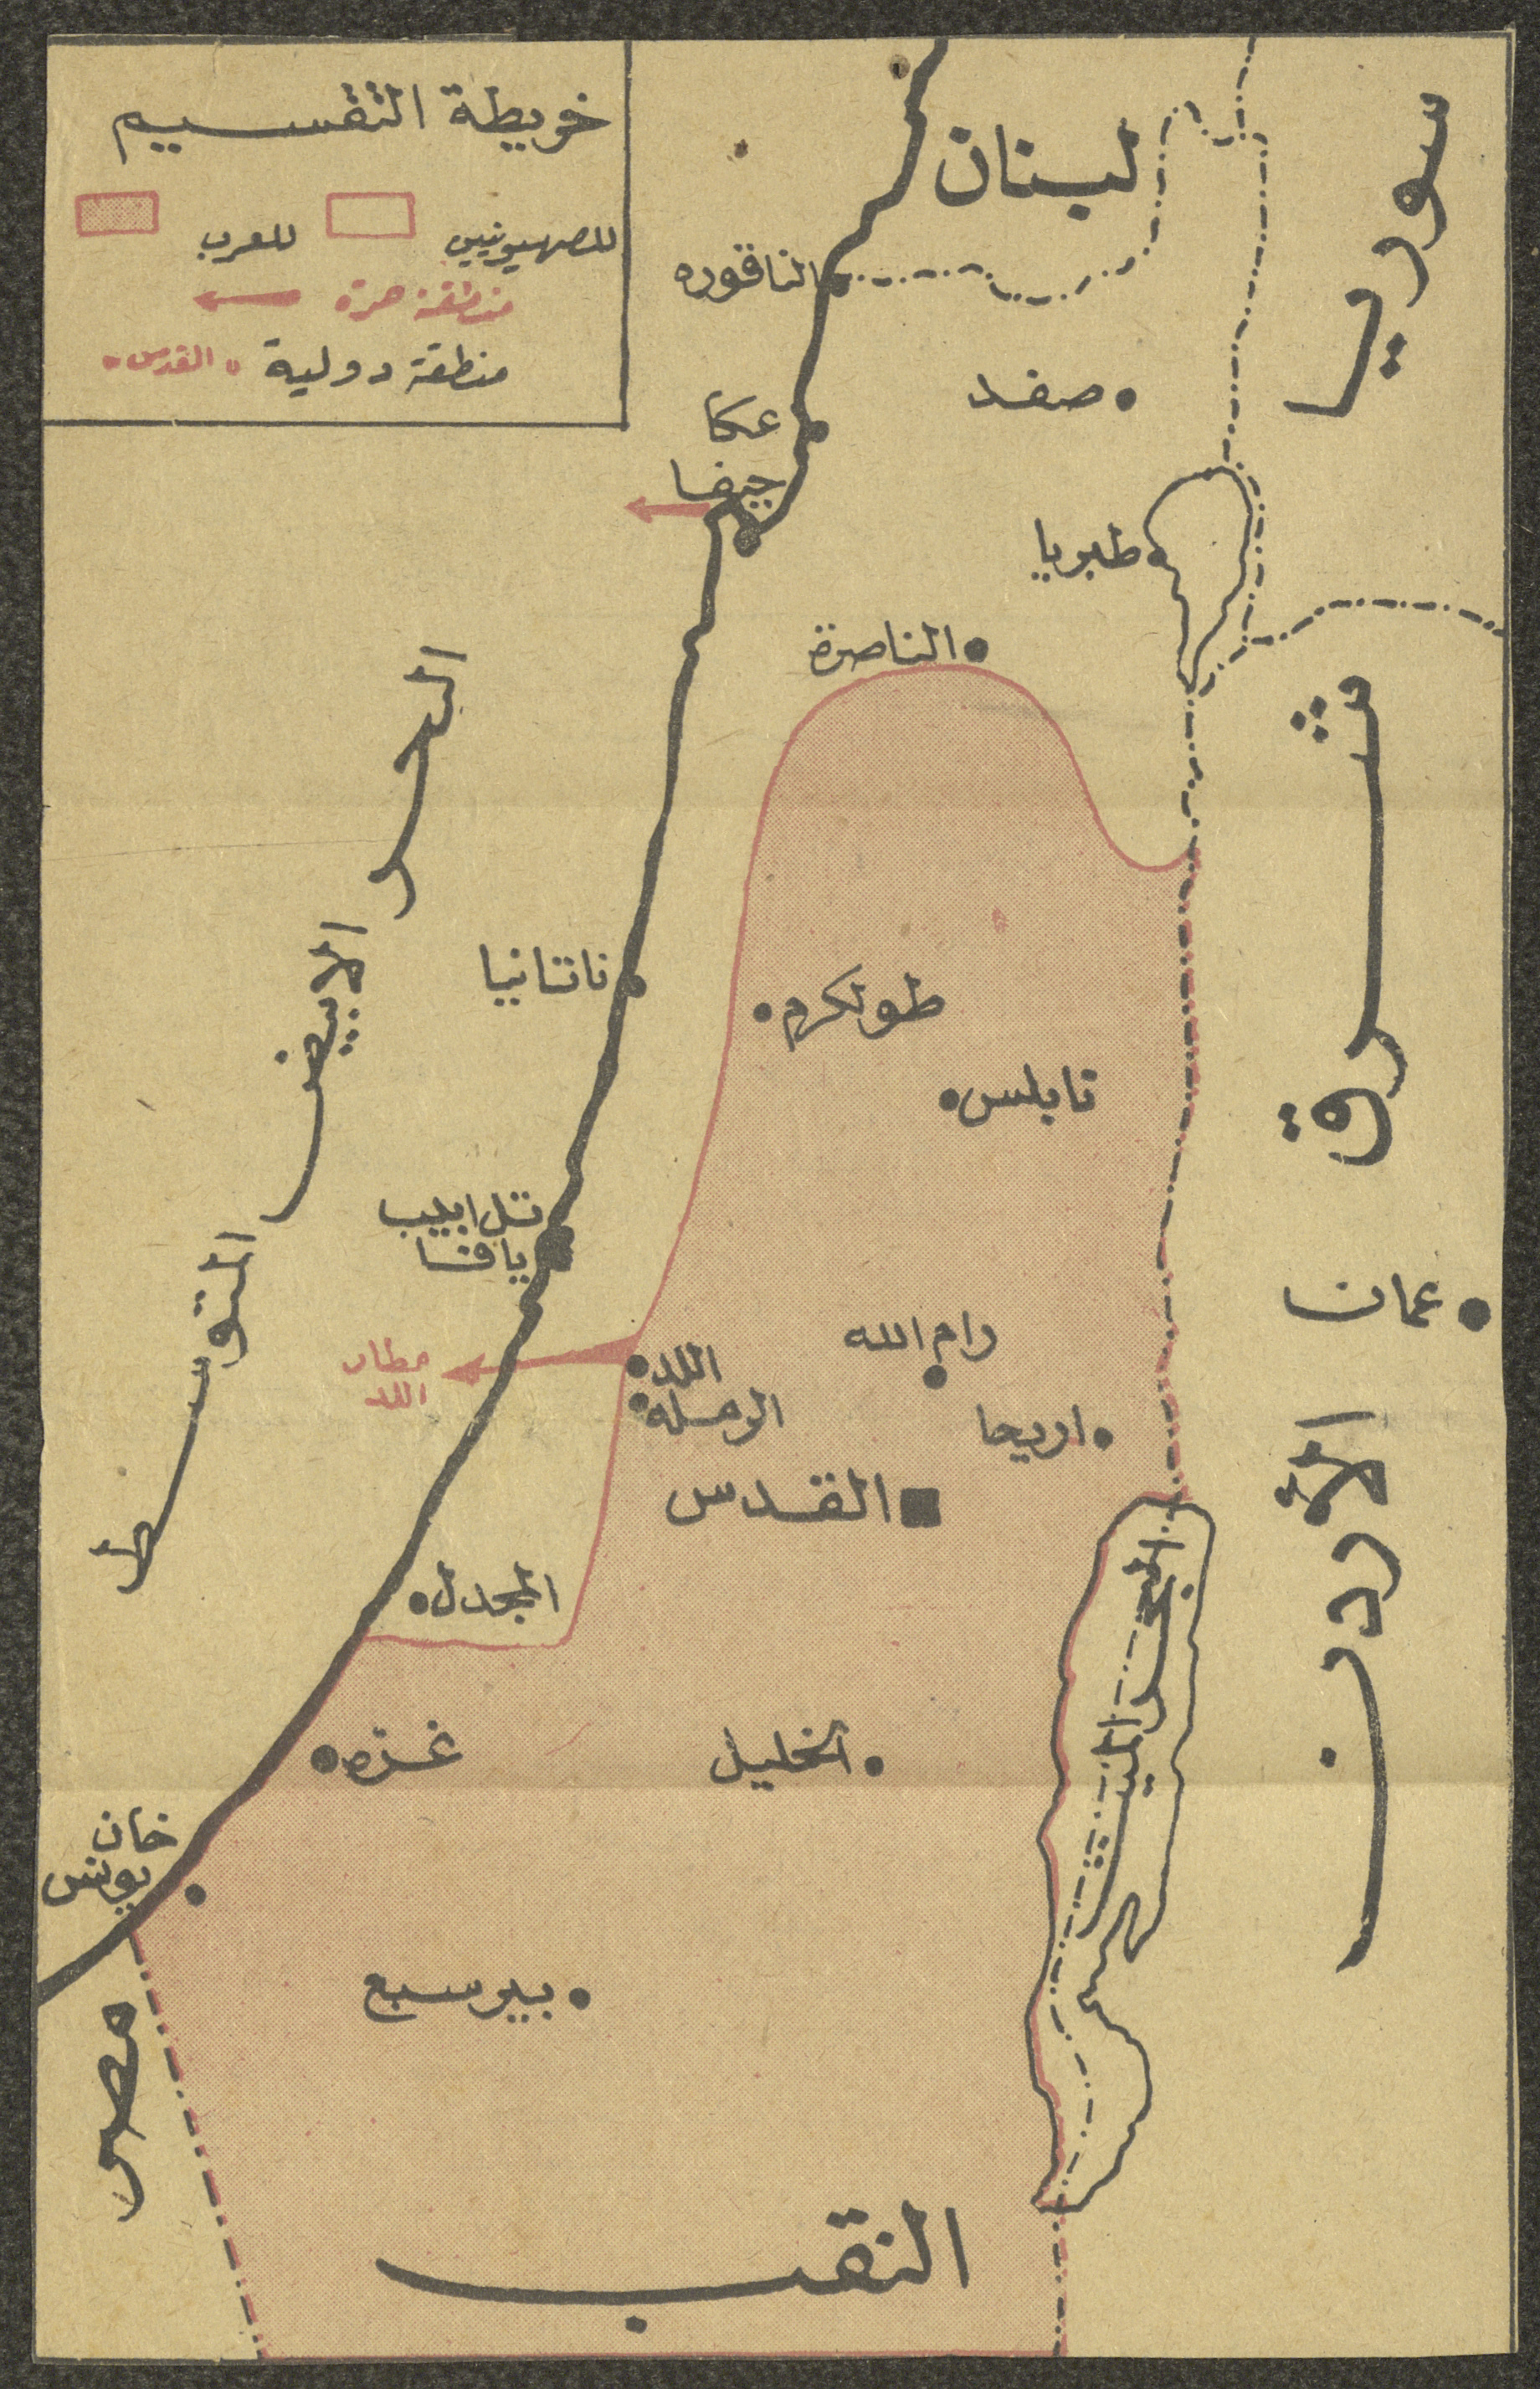 خريطة التقسيم
للصهيونيين
للعرب
منطقة حرة
منطقة دولية "القدس"
لبنان
سوريا
الناقوره
صفد
عكا
حيفا
طبريا
الناصرة
البحر الابيض المتوسط
شرق الأردن
ناتانيا
طولكرم
نابلس
تل ابيب
يافا
عمان
رام الله
مطار
اللد
اللد
الرمله
اريحا
القدس
المجدل
البحر الميت
غزه
الخليل
خان
يونس
بير سبع
مصر
النقب